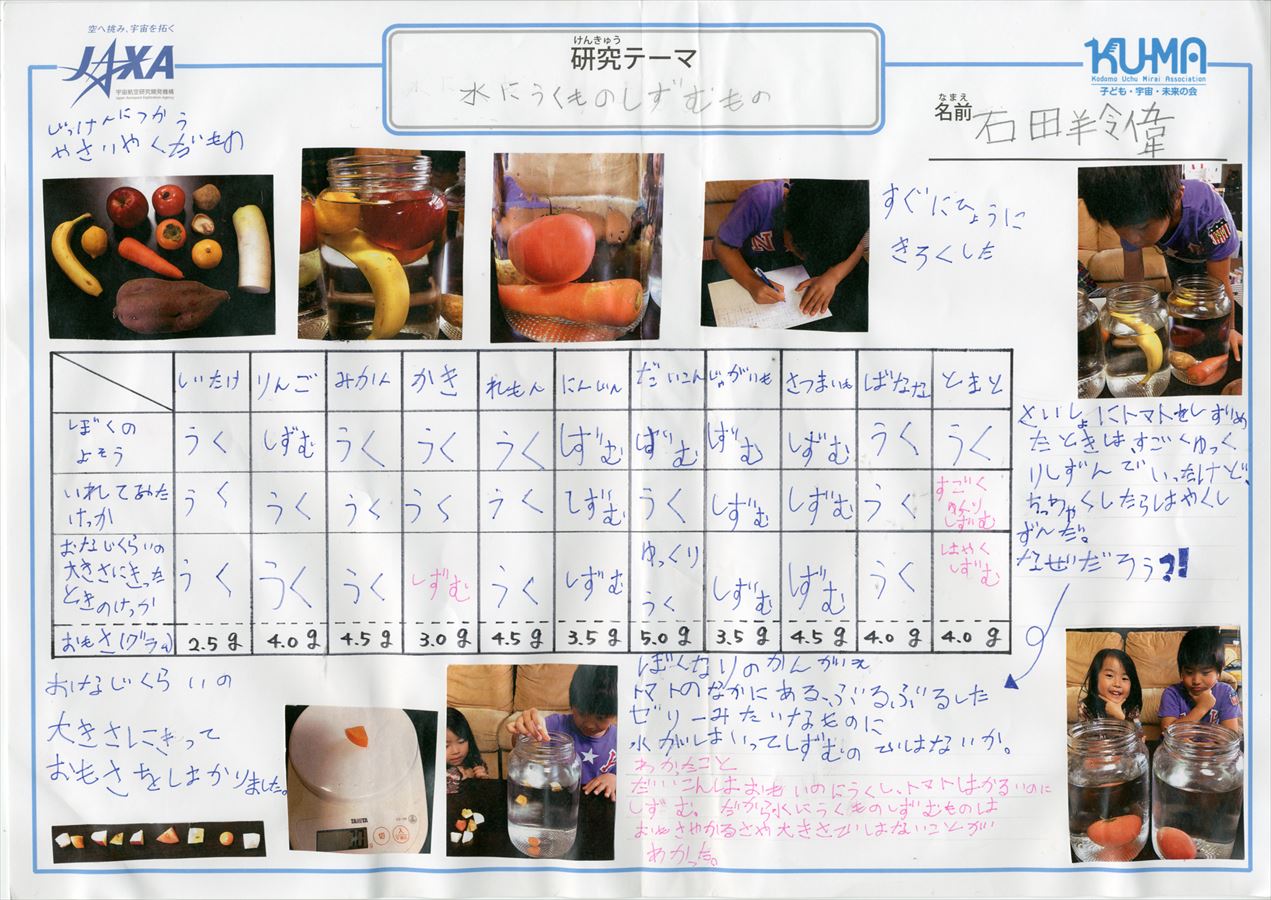 空へ挑み、宇宙を拓く
JAXA
宇宙航空研究開発機構
Japan Aerospace Exploration Agency
けんきゅう
研究テーマ
水にうくものしずむもの
KUMA
Kodomo Uchu Mirai Association
子ども・宇宙・未来の会
なまえ
名前 石田羊令偉
じっけんにつかう
やさいやくだもの
すぐにひょうに
きろくした
しいたけ りんご みかん かき れもん にんじん だいこん じゃがいも さつまいも ばなな とまと
ぼくの
よそう
うく しずむ うく うく うく しずむ しずむ しずむ しずむ うく うく
いれてみた
けっか
うく うく うく うく うく しずむ うく しずむ しずむ うく すごくゆっくりしずむ
おなじくらいの
大きさにきった
ときのけっか
うく うく うく しずむ うく しずむ ゆっくりうく しずむ しずむ うく はやくしずむ
おもさ(グラム) 2.5g 4.0g 4.5g 3.0g 4.5g 3.5g 5.0g 3.5g 4.5g 4.0g 4.0g
さいしょにトマトをしずめ
たときは、すごくゆっく
りしずんでいったけど、
ちっちゃくしたらはやくし
ずんだ。
なぜだろう?!
おなじくらいの
大きさにきって
おもさをはかりました。
TANITA
ぼくなりのかんがえ
トマトのなかにある、ぶるぶるした
ゼリーみたいなものに
水がはいってしずむのではないか。
わかったこと
だいこんはおもいのにうくし、トマトはかるいのに
しずむ。だから水にうくものしずむものは
おもさやかるさや大きさではないことが
わかった。